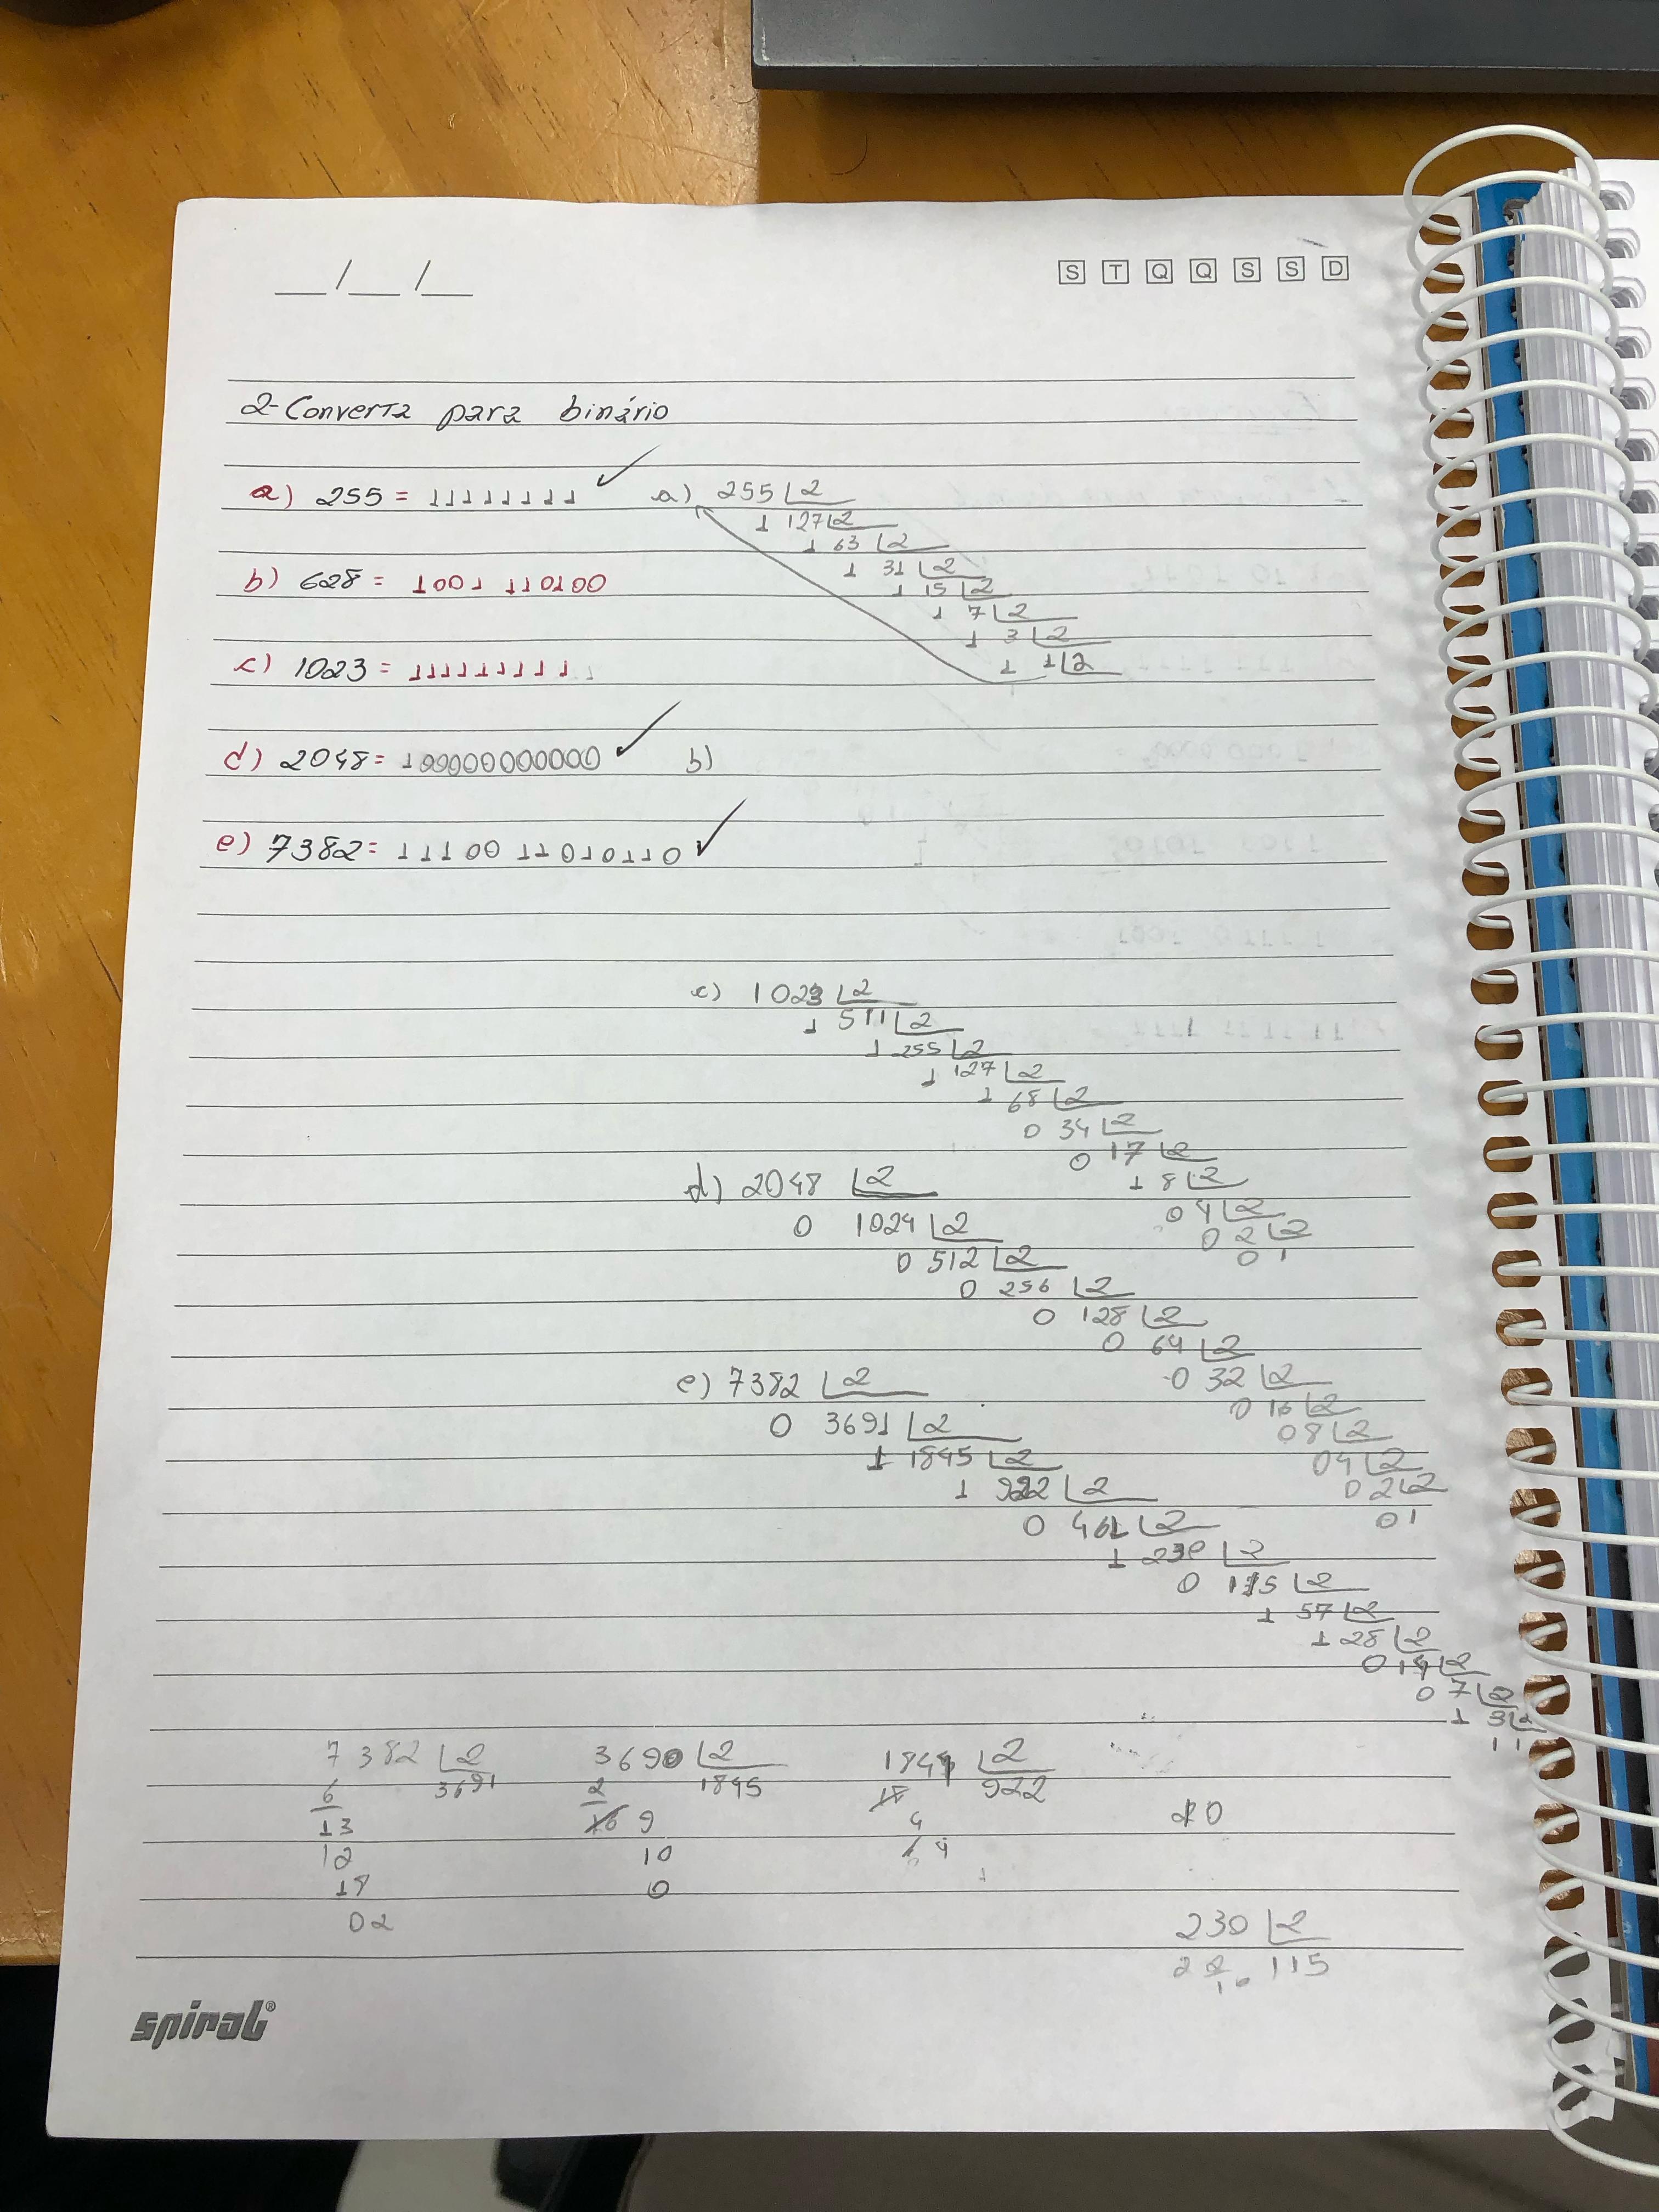 __/__/__
S T Q Q S S D
2-Converta para binário
a) 255 = 11111111 ✓
b) 628 = 1001 110100
c) 1023 = 1111111111
d) 2048 = 100000000000 ✓
e) 7382 = 11100 11010110 ✓
a) 255 2
1 127 2
1 63 2
1 31 2
1 15 2
1 7 2
1 3 2
1 1 2
b)
c) 1023 2
1 511 2
1 255 2
1 127 2
1 68 2
0 34 2
0 17 2
1 8 2
0 4 2
0 2 2
0 1
d) 2048 2
0 1024 2
0 512 2
0 256 2
0 128 2
0 64 2
0 32 2
0 16 2
0 8 2
0 4 2
0 2 2
0 1
e) 7382 2
0 3691 2
1 1845 2
1 922 2
0 461 2
1 230 2
0 115 2
1 57 2
1 28 2
0 14 2
0 7 2
1 3 2
1 1
7382 2
6 3691
13
12
18
02
3690 2
2 1845
9
10
0
1844 2
18 922
4
4
0
230 2
2 2 115
1
spiral®